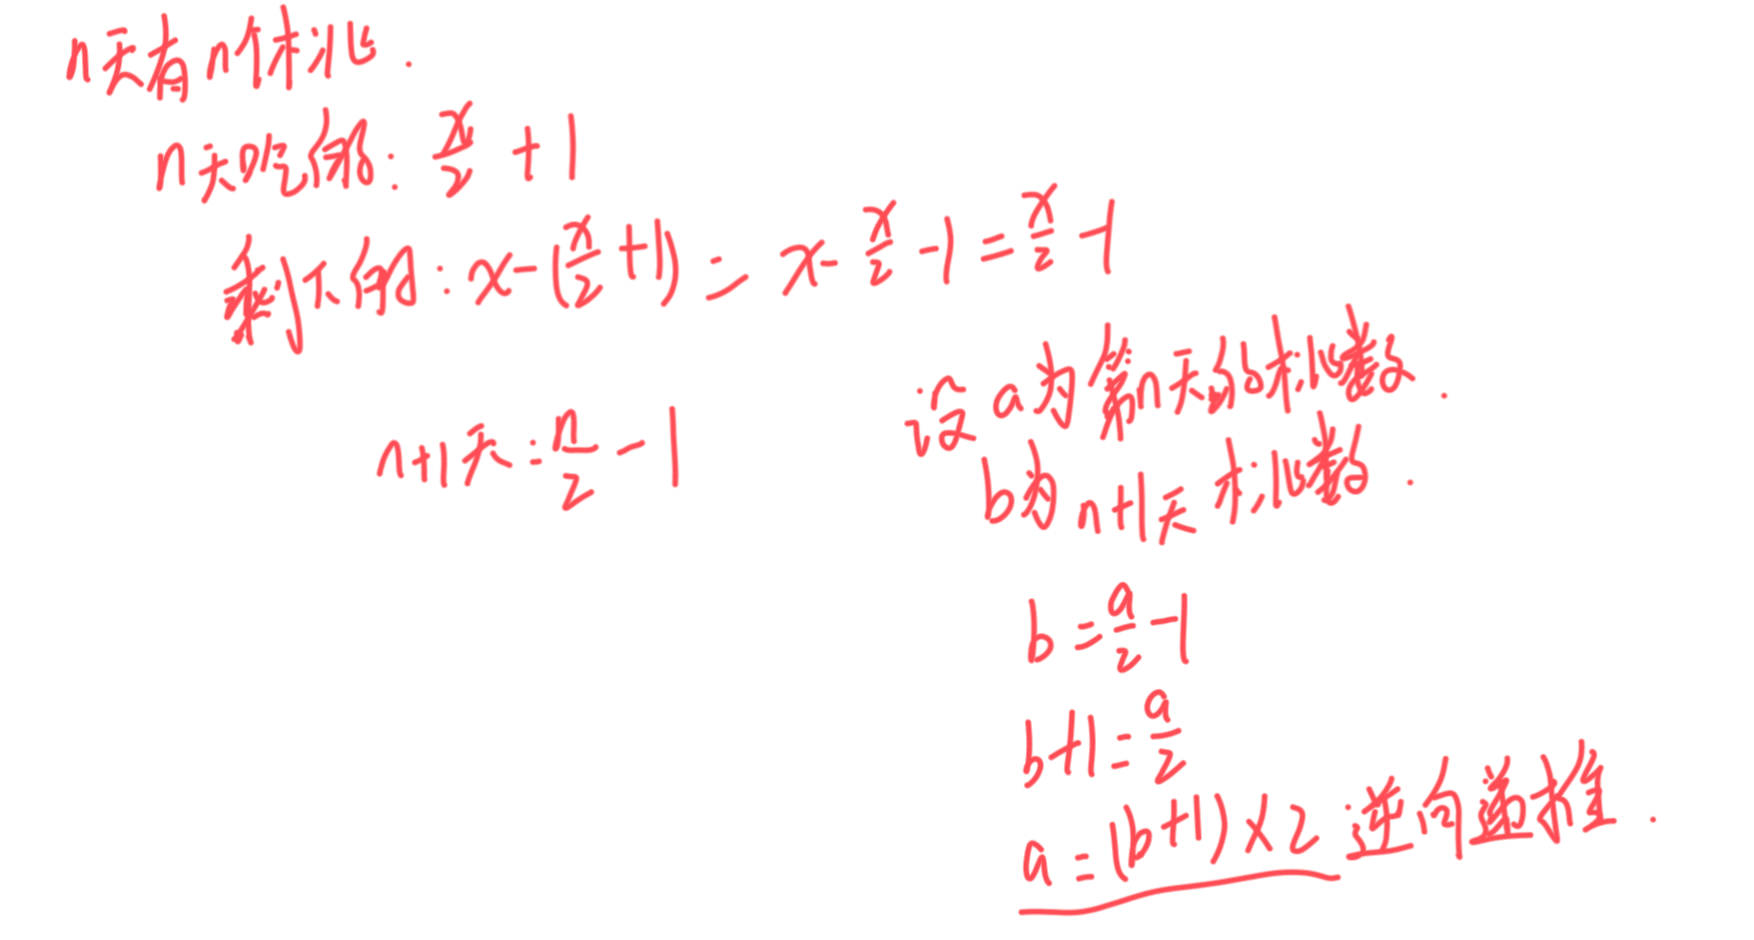 n天有n个桃.
n天吃的: x/2 + 1
剩下的: x-(x/2+1) = x-x/2-1 = x/2-1
n+1天 = n/2 - 1
设a为第n天的桃数.
b为n+1天桃数.
b = a/2 - 1
b+1 = a/2
a = (b+1)×2 逆向递推.